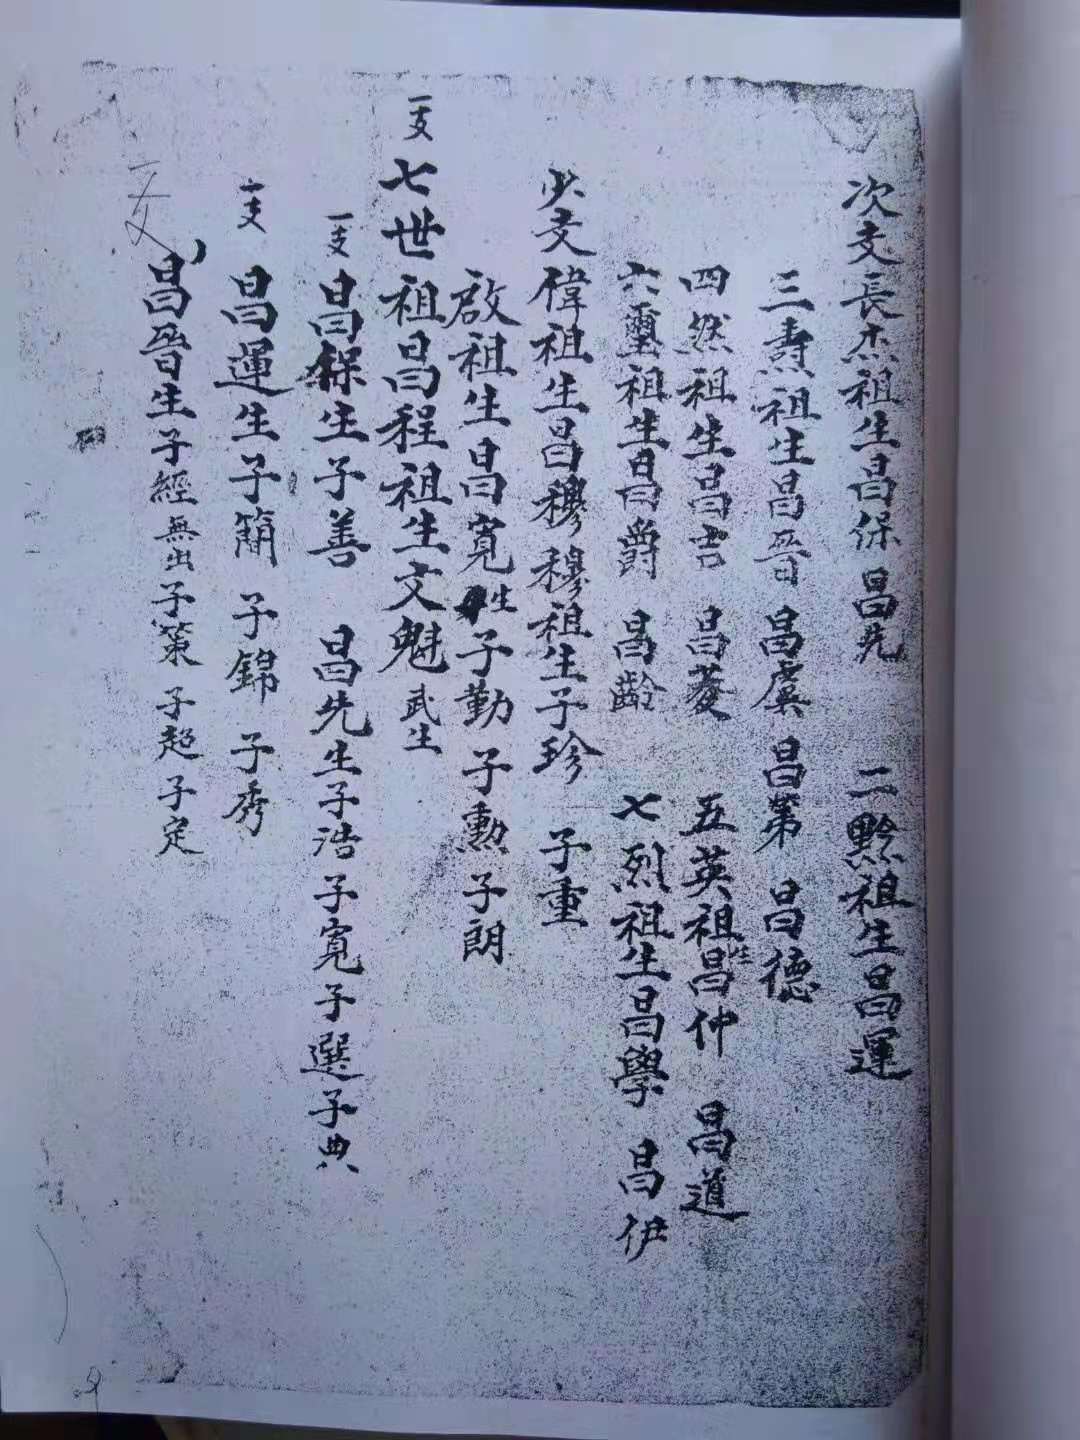 次支長杰祖生昌保 昌先 二黔祖生昌運
三壽祖生昌晉 昌虞 昌第 昌德
四然祖生昌吉 昌菱 五英祖生昌仲 昌道
六璽祖生昌爵 昌齡 七烈祖生昌學 昌伊
少支偉祖生昌穆 穆祖生子珍 子重
啟祖生昌寬 生子勤 子勳 子朗
一支 七世祖昌程祖生文魁 武生
一支 昌保生子善 昌先生子浩 子寬 子選 子典
一支 昌運生子簡 子錦 子秀
一支 昌晉生子經 無出 子策 子超 子定